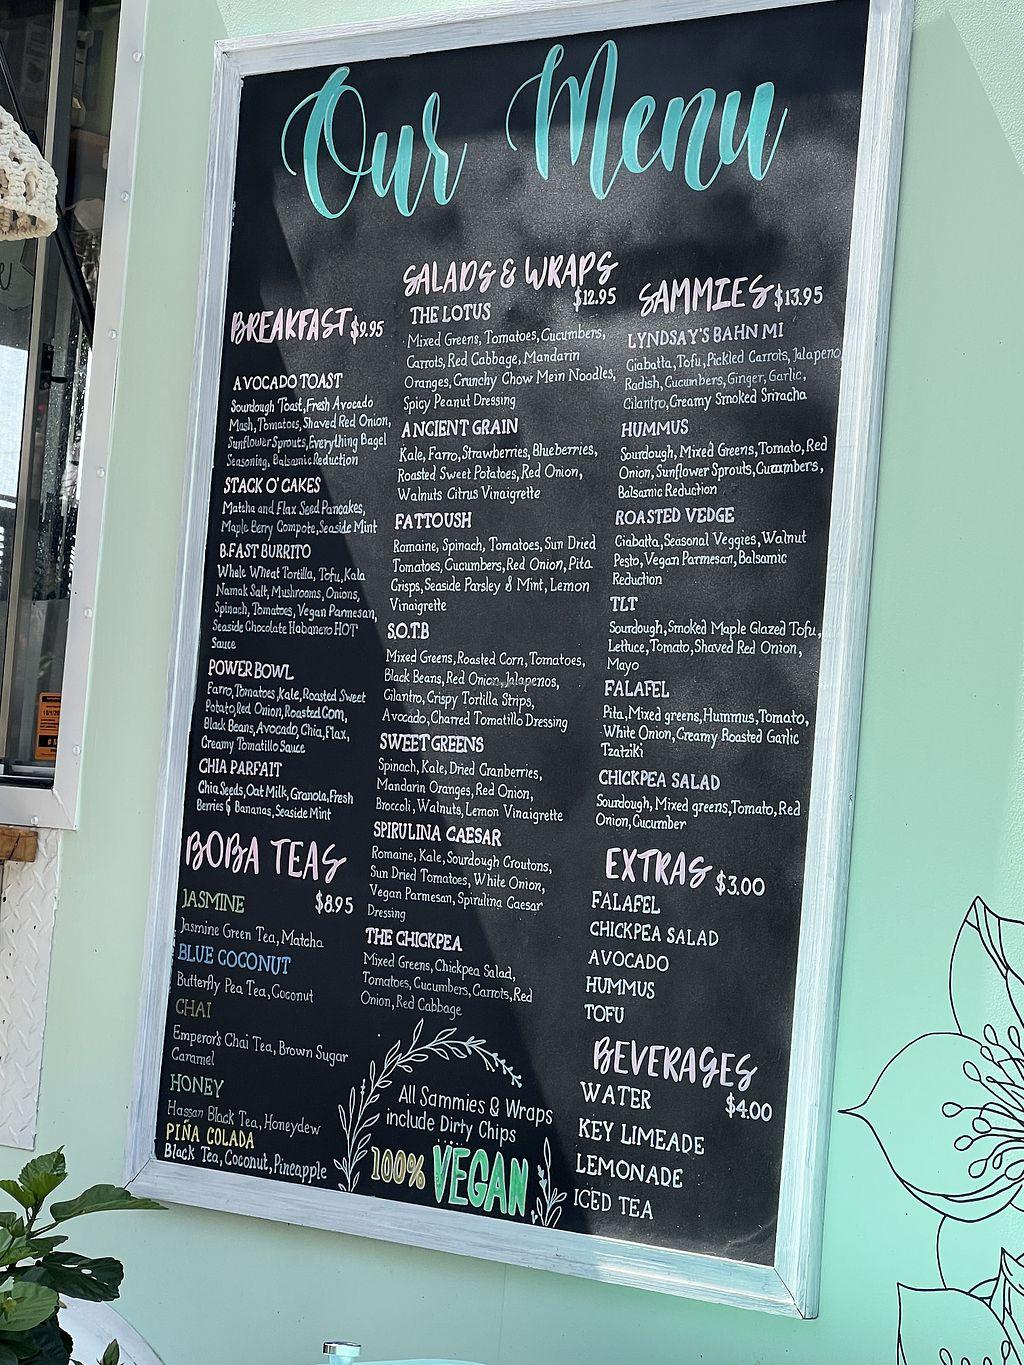 Our Menu
BREAKFAST $9.95
AVOCADO TOAST
Sourdough Toast, Fresh Avocado
Mash, Tomatoes, Shaved Red Onion,
Sunflower Sprouts, Everything Bagel
Seasoning, Balsamic Reduction
STACK O' CAKES
Matcha and Flax Seed Pancakes,
Maple Berry Compote, Seaside Mint
B.FAST BURRITO
Whole Wheat Tortilla, Tofu, Kala
Namak Salt, Mushrooms, Onions,
Spinach, Tomatoes, Vegan Parmesan,
Seaside Chocolate Habanero HOT
Sauce
POWER BOWL
Farro, Tomatoes, Kale, Roasted Sweet
Potato, Red Onion, Roasted Corn,
Black Beans, Avocado, Chia, Flax,
Creamy Tomatillo Sauce
CHIA PARFAIT
Chia Seeds, Oat Milk, Granola, Fresh
Berries & Bananas, Seaside Mint
BOBA TEAS
JASMINE $8.95
Jasmine Green Tea, Matcha
BLUE COCONUT
Butterfly Pea Tea, Coconut
CHAI
Emperor's Chai Tea, Brown Sugar
Caramel
HONEY
Hassan Black Tea, Honeydew
PIÑA COLADA
Black Tea, Coconut, Pineapple
SALADS & WRAPS
$12.95
THE LOTUS
Mixed Greens, Tomatoes, Cucumbers,
Carrots, Red Cabbage, Mandarin
Oranges, Crunchy Chow Mein Noodles,
Spicy Peanut Dressing
ANCIENT GRAIN
Kale, Farro, Strawberries, Blueberries,
Roasted Sweet Potatoes, Red Onion,
Walnuts Citrus Vinaigrette
FATTOUSH
Romaine, Spinach, Tomatoes, Sun Dried
Tomatoes, Cucumbers, Red Onion, Pita
Crisps, Seaside Parsley & Mint, Lemon
Vinaigrette
S.O.T.B
Mixed Greens, Roasted Corn, Tomatoes,
Black Beans, Red Onion, Jalapenos,
Cilantro, Crispy Tortilla Strips,
Avocado, Charred Tomatillo Dressing
SWEET GREENS
Spinach, Kale, Dried Cranberries,
Mandarin Oranges, Red Onion,
Broccoli, Walnuts, Lemon Vinaigrette
SPIRULINA CAESAR
Romaine, Kale, Sourdough Croutons,
Sun Dried Tomatoes, White Onion,
Vegan Parmesan, Spirulina Caesar
Dressing
THE CHICKPEA
Mixed Greens, Chickpea Salad,
Tomatoes, Cucumbers, Carrots, Red
Onion, Red Cabbage
All Sammies & Wraps
include Dirty Chips
100% VEGAN
SAMMIES $13.95
LYNDSAY'S BAHN MI
Ciabatta, Tofu, Pickled Carrots, Jalapeno
Radish, Cucumbers, Ginger, Garlic,
Cilantro, Creamy Smoked Sriracha
HUMMUS
Sourdough, Mixed Greens, Tomato, Red
Onion, Sunflower Sprouts, Cucumbers,
Balsamic Reduction
ROASTED VEDGE
Ciabatta, Seasonal Veggies, Walnut
Pesto, Vegan Parmesan, Balsamic
Reduction
TLT
Sourdough, Smoked Maple Glazed Tofu,
Lettuce, Tomato, Shaved Red Onion,
Mayo
FALAFEL
Pita, Mixed greens, Hummus, Tomato,
White Onion, Creamy Roasted Garlic
Tzatziki
CHICKPEA SALAD
Sourdough, Mixed greens, Tomato, Red
Onion, Cucumber
EXTRAS $3.00
FALAFEL
CHICKPEA SALAD
AVOCADO
HUMMUS
TOFU
BEVERAGES
WATER $4.00
KEY LIMEADE
LEMONADE
ICED TEA